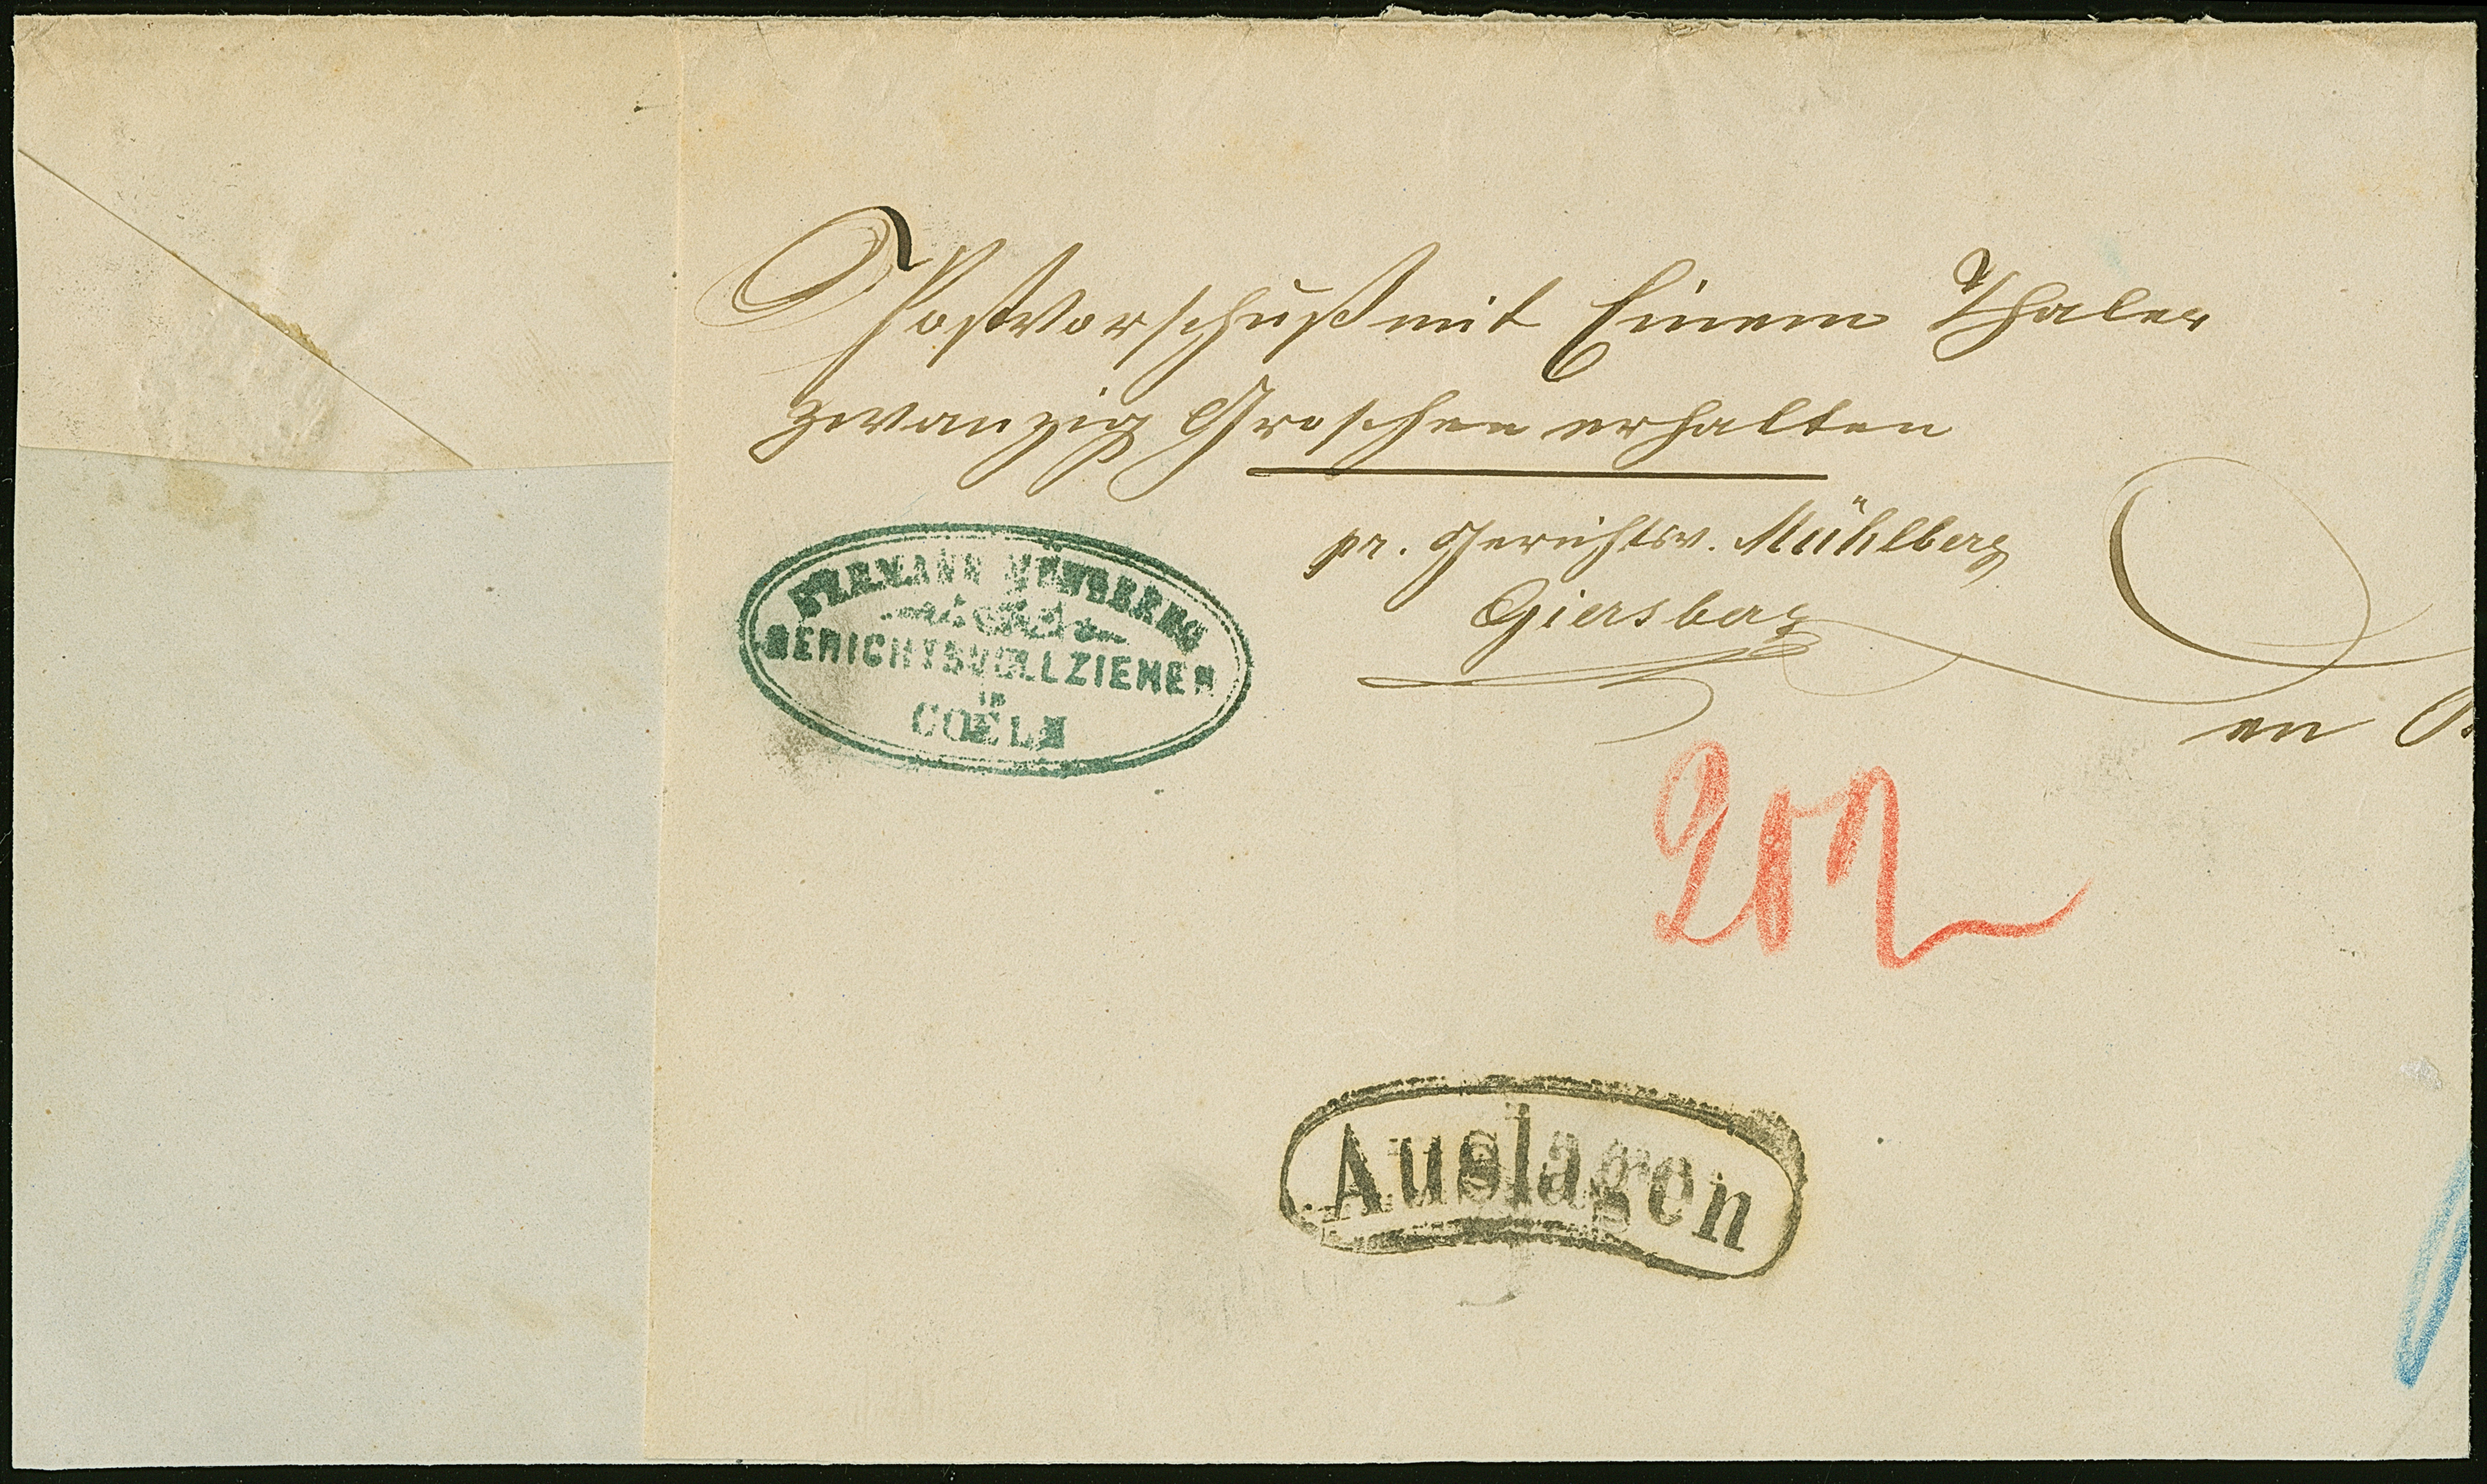 Postvorschuß mit Einem Thaler
zwanzig Groschen erhalten
pr. Gerichtsv. Mühlberg
Giersberg
GERICHTSVOLLZIEHER
IN
COELN
en
Auslagen